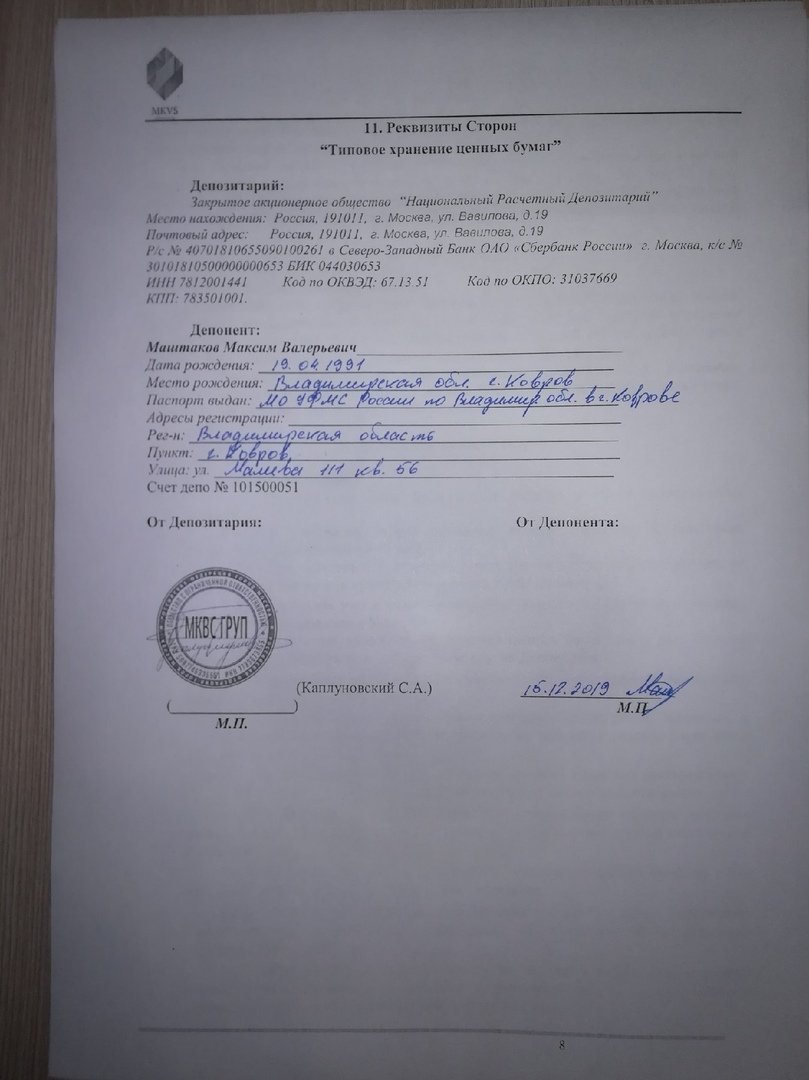 MKVS
11. Реквизиты Сторон
“Типовое хранение ценных бумаг”
Депозитарий:
Закрытое акционерное общество "Национальный Расчетный Депозитарий"
Место нахождения: Россия, 191011, г. Москва, ул. Вавилова, д.19
Почтовый адрес: Россия, 191011, г. Москва, ул. Вавилова, д.19
Р/с № 40701810655090100261 в Северо-Западный Банк ОАО «Сбербанк России» г. Москва, к/с №
30101810500000000653 БИК 044030653
ИНН 7812001441 Код по ОКВЭД: 67.13.51 Код по ОКПО: 31037669
КПП: 783501001.
Депонент:
Маштаков Максим Валерьевич
Дата рождения: 19.04.1991
Место рождения: Владимирская обл. г. Ковров
Паспорт выдан: МО УФМС России по Владимир. обл. в г. Коврове
Адресы регистрации:
Рег-н: Владимирская область
Пункт: г. Ковров
Улица: ул. 111 кв. 56
Счет депо № 101500051
От Депозитария: От Депонента:
МКВС ГРУП
(Каплуновский С.А.) 15.12.2019
(                ) М.П.
М.П.
8